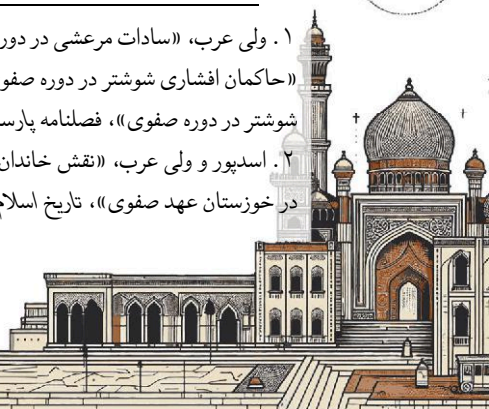 ۱. ولی عرب، «سادات مرعشی در دور
«حاکمان افشاری شوشتر در دوره صفو
شوشتر در دوره صفوی»، فصلنامه پارس
۲. اسدپور و ولی عرب، «نقش خاندان
در خوزستان عهد صفوی»، تاریخ اسلام